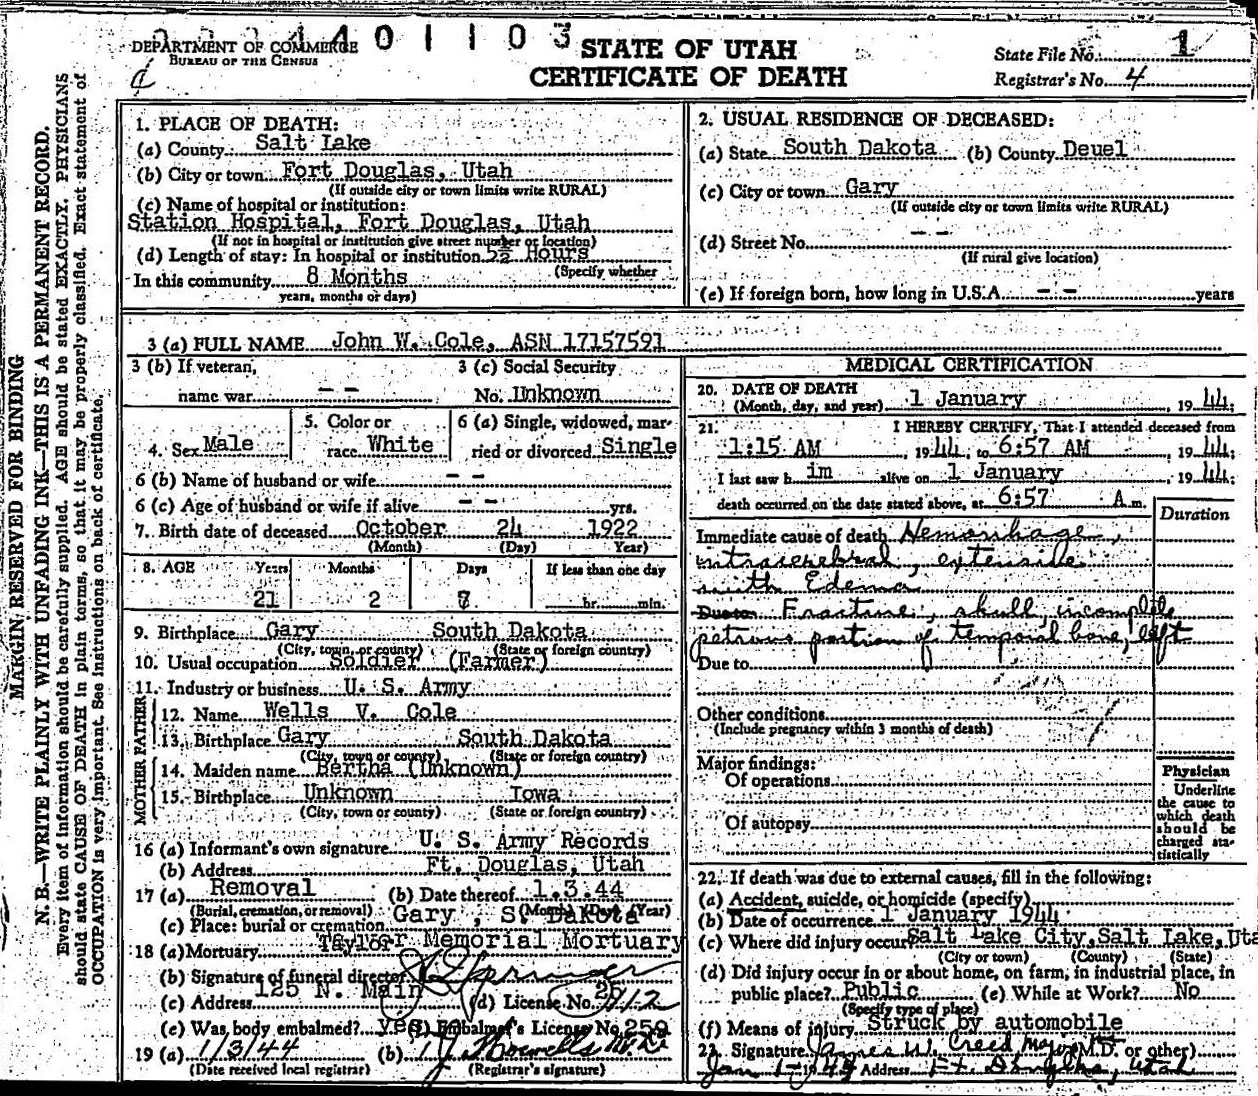 DEPARTMENT OF COMMERCE
BUREAU OF THE CENSUS
4 0 1 1 0 3
STATE OF UTAH
CERTIFICATE OF DEATH
State File No. 1
Registrar's No. 4
MARGIN RESERVED FOR BINDING
N. B.—WRITE PLAINLY WITH UNFADING INK—THIS IS A PERMANENT RECORD.
Every item of information should be carefully supplied. AGE should be stated EXACTLY. PHYSICIANS
should state CAUSE OF DEATH in plain terms, so that it may be properly classified. Exact statement of
OCCUPATION is very important. See instructions on back of certificate.
1. PLACE OF DEATH:
(a) County Salt Lake
(b) City or town Fort Douglas, Utah
(If outside city or town limits write RURAL)
(c) Name of hospital or institution:
Station Hospital, Fort Douglas, Utah
(If not in hospital or institution give street number or location)
(d) Length of stay: In hospital or institution 5½ Hours
(Specify whether
In this community 8 Months
years, months or days)
2. USUAL RESIDENCE OF DECEASED:
(a) State South Dakota (b) County Deuel
(c) City or town Gary
(If outside city or town limits write RURAL)
(d) Street No. - -
(If rural give location)
(e) If foreign born, how long in U.S.A. - - years
3 (a) FULL NAME John W. Cole, ASN 17157591
3 (b) If veteran,
name war - -
3 (c) Social Security
No. Unknown
4. Sex Male
5. Color or
race White
6 (a) Single, widowed, mar-
ried or divorced Single
6 (b) Name of husband or wife - -
6 (c) Age of husband or wife if alive - - yrs.
7. Birth date of deceased October 24 1922
(Month) (Day) Year)
8. AGE Years Months Days If less than one day
21 2 hr. min.
9. Birthplace Gary South Dakota
(City, town, or county) (State or foreign country)
10. Usual occupation Soldier (Farmer)
11. Industry or business U. S. Army
FATHER
12. Name Wells V. Cole
13. Birthplace Gary South Dakota
(City, town or county) (State or foreign country)
MOTHER
14. Maiden name Bertha (Unknown)
15. Birthplace Unknown Iowa
(City, town or county) (State or foreign country)
16 (a) Informant's own signature U. S. Army Records
(b) Address Ft. Douglas, Utah
17 (a) Removal (b) Date thereof 1.3.44
(Burial, cremation, or removal) (Month) (Day) (Year)
(c) Place: burial or cremation Gary, S. Dakota
18 (a) Mortuary Taylor Memorial Mortuary
(b) Signature of funeral director
(c) Address 125 N. Main (d) License No.
(e) Was body embalmed? yes (f) Embalmer's License No. 259
19 (a) 1/3/44 (b)
(Date received local registrar) (Registrar's signature)
MEDICAL CERTIFICATION
20. DATE OF DEATH
(Month, day, and year) 1 January, 1944;
21. I HEREBY CERTIFY, That I attended deceased from
1:15 AM, 1944, to 6:57 AM, 1944;
I last saw h im alive on 1 January, 1944;
death occurred on the date stated above, at 6:57 A m.
Duration
Immediate cause of death Hemorrhage,
intracerebral, extensive
with Edema
Due to Fracture, skull, incomplete
petrous portion of temporal bone, left
Due to
Other conditions
(Include pregnancy within 3 months of death)
Major findings:
Of operations
Of autopsy
Physician
Underline
the cause to
which death
should be
charged sta-
tistically
22. If death was due to external causes, fill in the following:
(a) Accident, suicide, or homicide (specify)
(b) Date of occurrence 1 January 1944
(c) Where did injury occur? Salt Lake City, Salt Lake, Uta
(City or town) (County) (State)
(d) Did injury occur in or about home, on farm, in industrial place, in
public place? Public (e) While at Work? No
(Specify type of place)
(f) Means of injury Struck by automobile
23. Signature James W. Creed Major (M.D. or other)
Jan 1-1944 Address Ft. Douglas, Utah